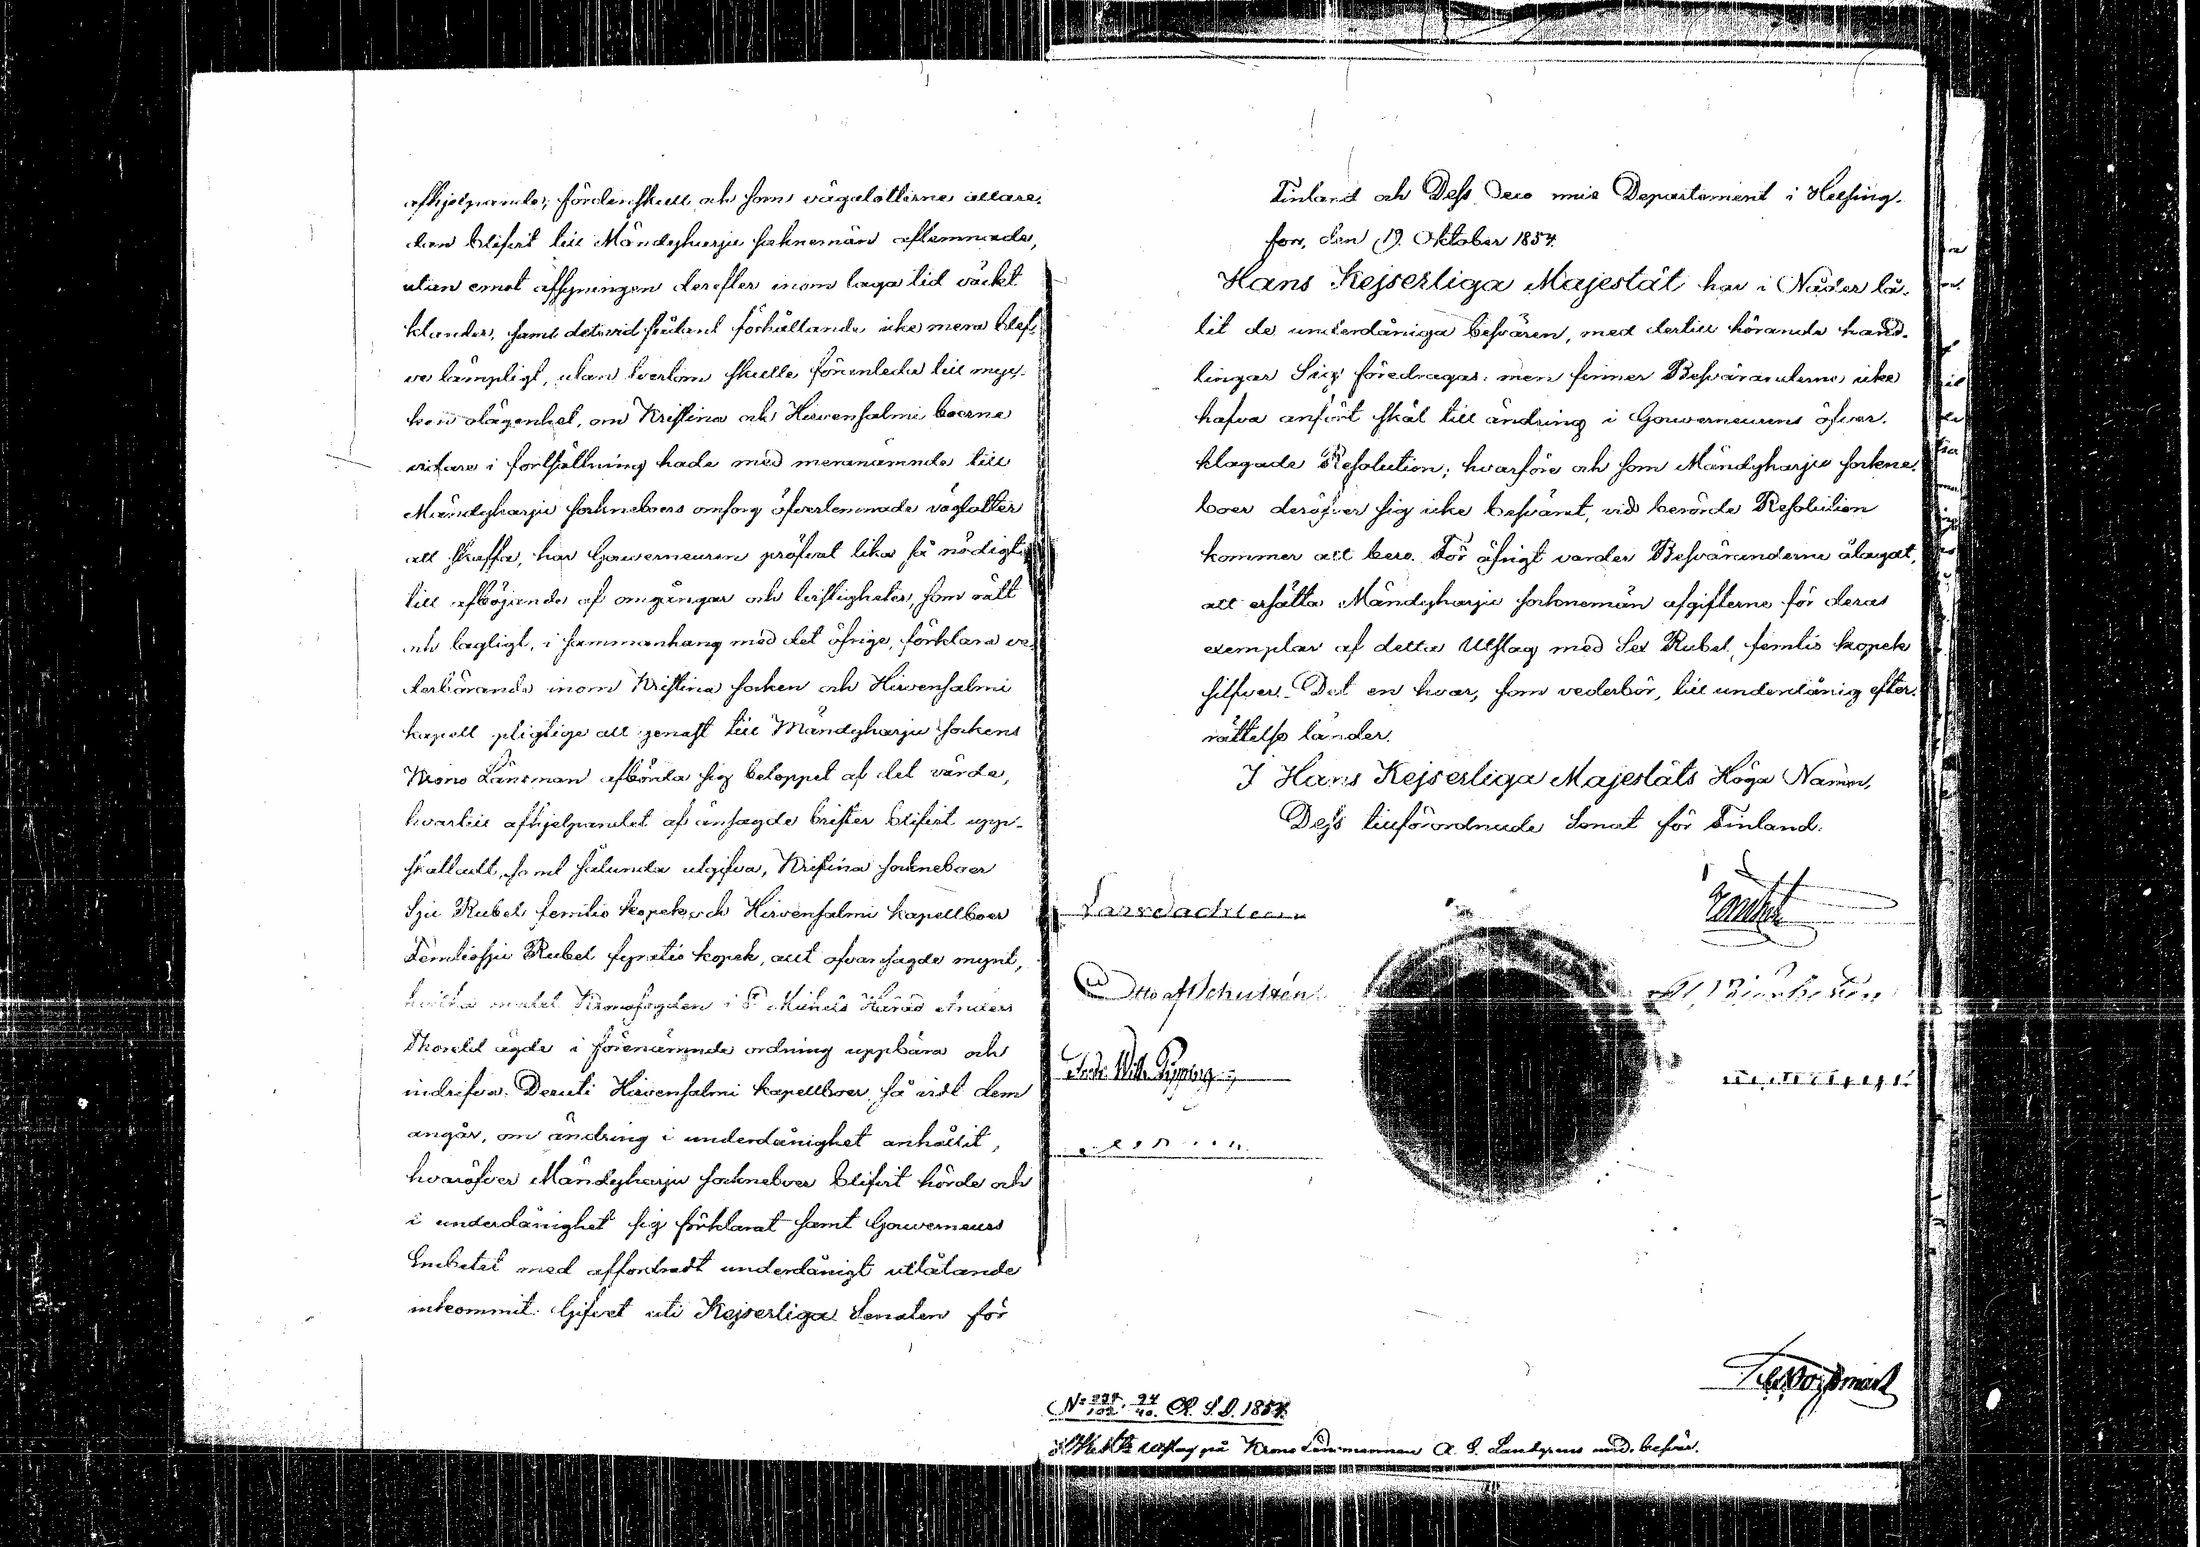 afhjelpande; fördenskull och som vägalotterne allare,
dan blifvit till Mändyharju soknemän aflemnade,
utan emot afsyningen derefter inom laga tid väckt
klander, samt detvid sådant förhållande icke mera blef-
ve lämpligt, utan tvertom skulle föranleda till myc-
ken olägenhet, om Kristina och Hirvensalmi boerne
vidare i fortsättning hade med meranämnde till
Mändyharju sockneboers omsorg öfverlemnade väglotter
att skaffa, har Gouverneuren pröfvat lika så nödigt
till afböjande af omgångar och tvistigheter, som rätt
och lagligt, i sammanhang med det öfriga, förklara ve-
derbörande inom Kristina socken och Hirvensalmi
kapell pligtige att genast till Mändyharju sockens
Krono Länsman afbörda sig beloppet af det värde,
hvartill afhjelpandet af ofansagde brister blifvit upp-
skattadt, samt sålunda utgifva, Kristina sockneboer
Sju Rubel femtio kopek och Hirvensalmi kapellboer
Femtiosju Rubel fyratio kopek, allt ofvansagde mynt,
hvilka medel Kronofogden i St Michels Härad Anders
Thoreld ägde i förenämnde ordning uppbära och
indrifva. Deruti Hirvensalmi kapellboer, så vidt dem
angår, om ändring i underdånighet anhållit,
hvaröfver Mändyharju sockneboer blifvit hörde och
i underdånighet sig förklarat samt Gouverneurs
Embetet med affordradt underdånigt utlåtande
inkommit. Gifvet uti Kejserliga Senaten för
Finland och Dess Oeco mie Departement i Helsing-
fors, den 19. Oktober 1854.
Hans Kejserliga Majestät har i Nåder lå-
tit de underdåniga besvären, med dertill hörande hand-
lingar Sig föredragas: men finner Besväranderne icke
hafva anfört skäl till ändring i Gouverneurens öfver-
klagade Resolution; hvarföre och som Mändyharju sockne-
boer deröfver sig icke besvärat, vid berörde Resolution
kommer att bero. För öfrigt varder Besväranderne ålagat,
att ersätta Mändyharju socknemän afgifterne för deras
exemplar af detta Utslag med Sex Rubel, femtio kopek
silfver. Det en hvar, som vederbör, till underdånig efter-
rättelse länder.
I Hans Kejserliga Majestäts Höga Namn,
Dess tillförordnade Senat för Finland.
Otto af Schultén
Fredr. Wilh. Pipping
No 102. 40. A. S. D. 1854.
Utslag på Krono Länsmannen A. G. Landgrens und. besvär.